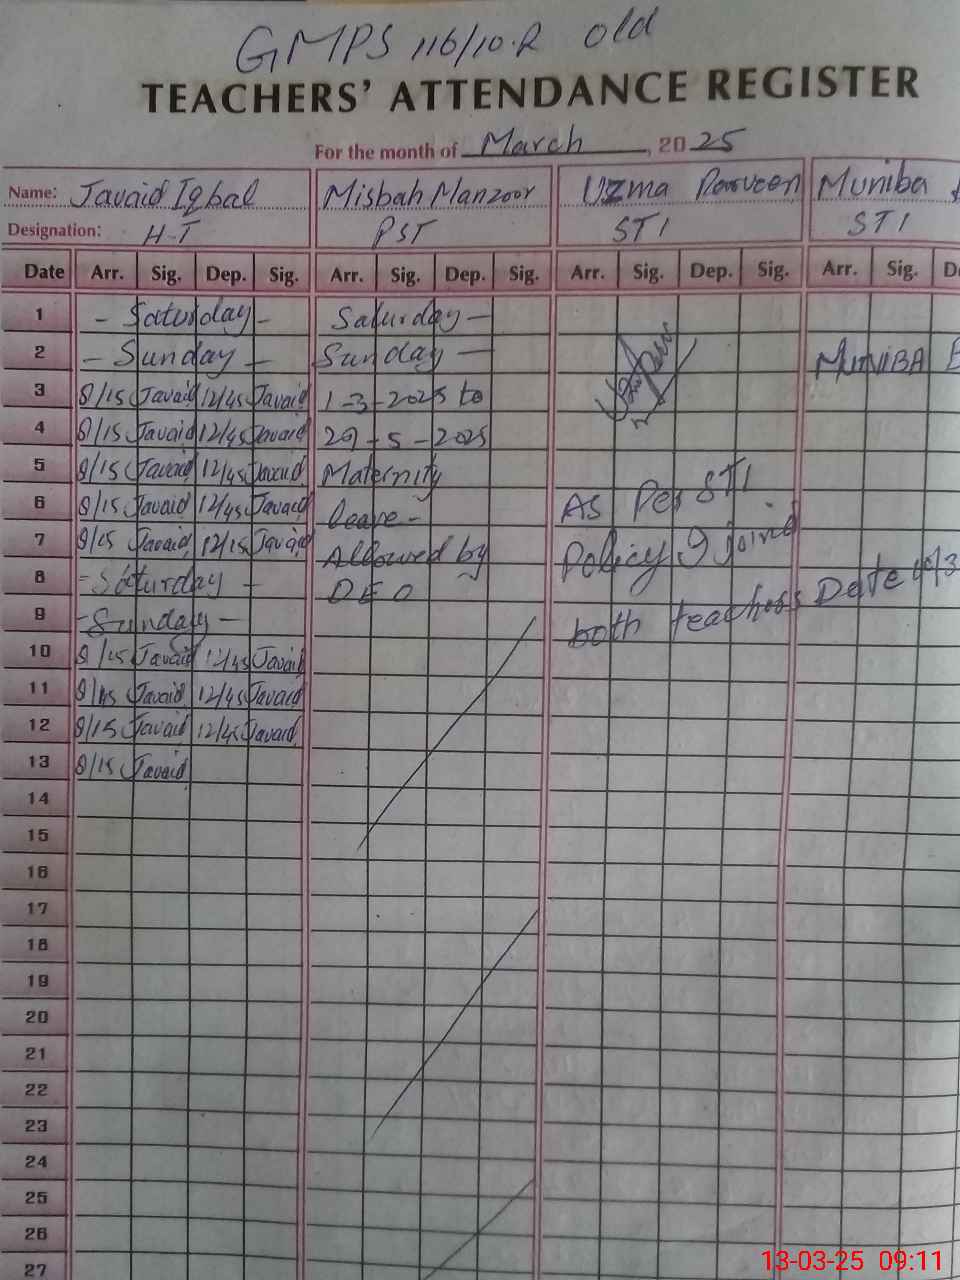 GMPS 116/10.R old
TEACHERS' ATTENDANCE REGISTER
For the month of March, 2025
Name: Javaid Iqbal Misbah Manzoor Uzma Parveen Muniba
Designation: H-T PST STI STI
Date Arr. Sig. Dep. Sig. Arr. Sig. Dep. Sig. Arr. Sig. Dep. Sig. Arr. Sig.
1 - Saturday - Saturday -
2 - Sunday - Sunday - MUNIBA
3 8/15 Javaid 12/45 Javaid 1-3-2025 to
4 8/15 Javaid 12/45 Javaid 29-5-2025
5 8/15 Javaid 12/45 Javaid Maternity
6 8/15 Javaid 12/45 Javaid leave- As Per STI
7 8/15 Javaid 12/15 Javaid Allowed by Policy I joind
8 - Saturday - DEO Date
9 - Sunday - both teachers
10 8/15 Javaid 12/45 Javaid
11 8/45 Javaid 12/45 Javaid
12 8/15 Javaid 12/45 Javaid
13 8/15 Javaid
14
15
16
17
18
19
20
21
22
23
24
25
26
27
13-03-25 09:11